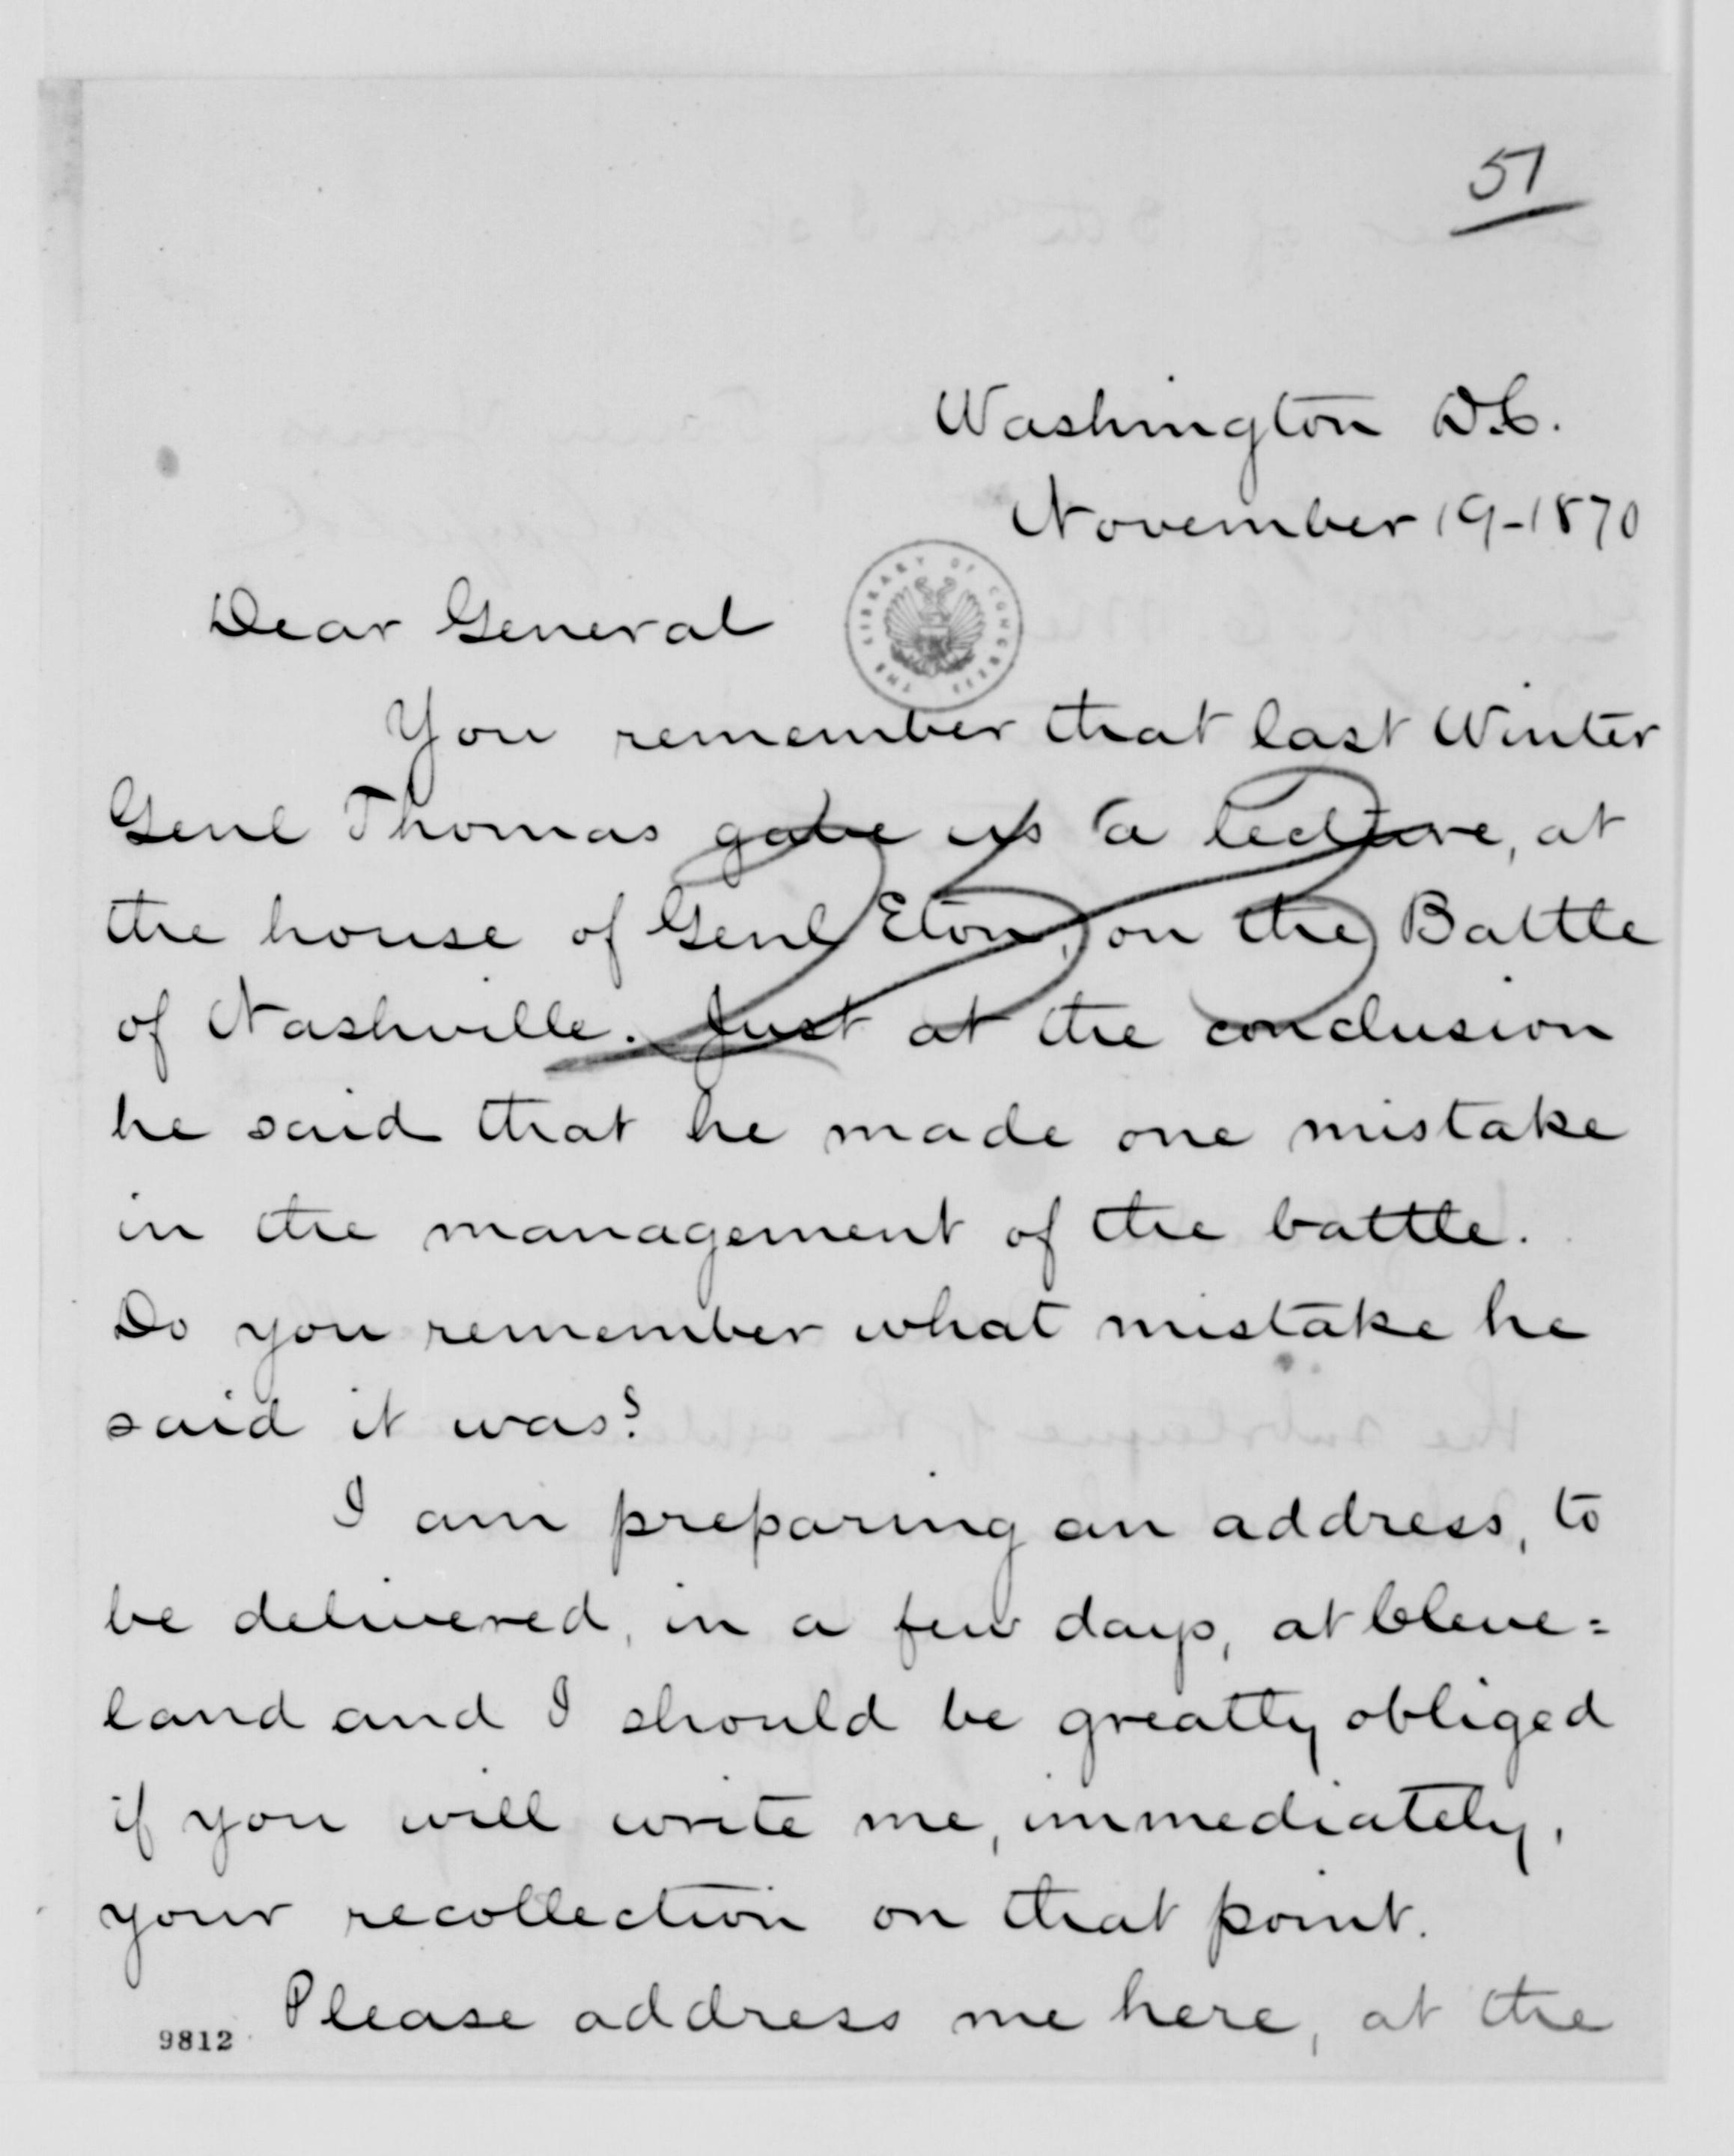 51
Washington D.C.
November 19-1870
THE LIBRARY OF CONGRESS
Dear General
You remember that last Winter
Genl Thomas gave us a lecture, at
the house of Genl Eton, on the Battle
of Nashville. Just at the conclusion
he said that he made one mistake
in the management of the battle.
Do you remember what mistake he
said it was?
I am preparing an address, to
be delivered, in a few days, at Cleve=
land and I should be greatly obliged
if you will write me, immediately,
your recollection on that point.
Please address me here, at the
9812